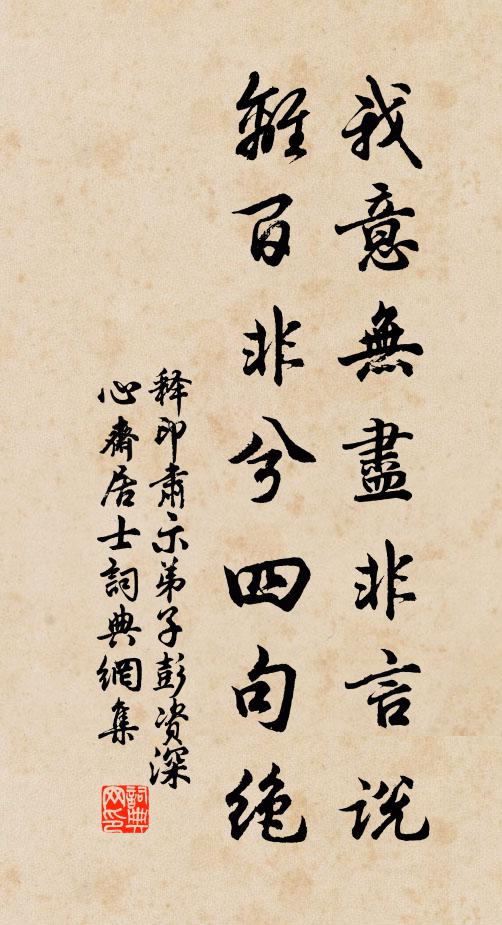 我意無盡非言說
離百非兮四句絶
释印肅示弟子彭资深
心齋居士詞典網集
詞典网印